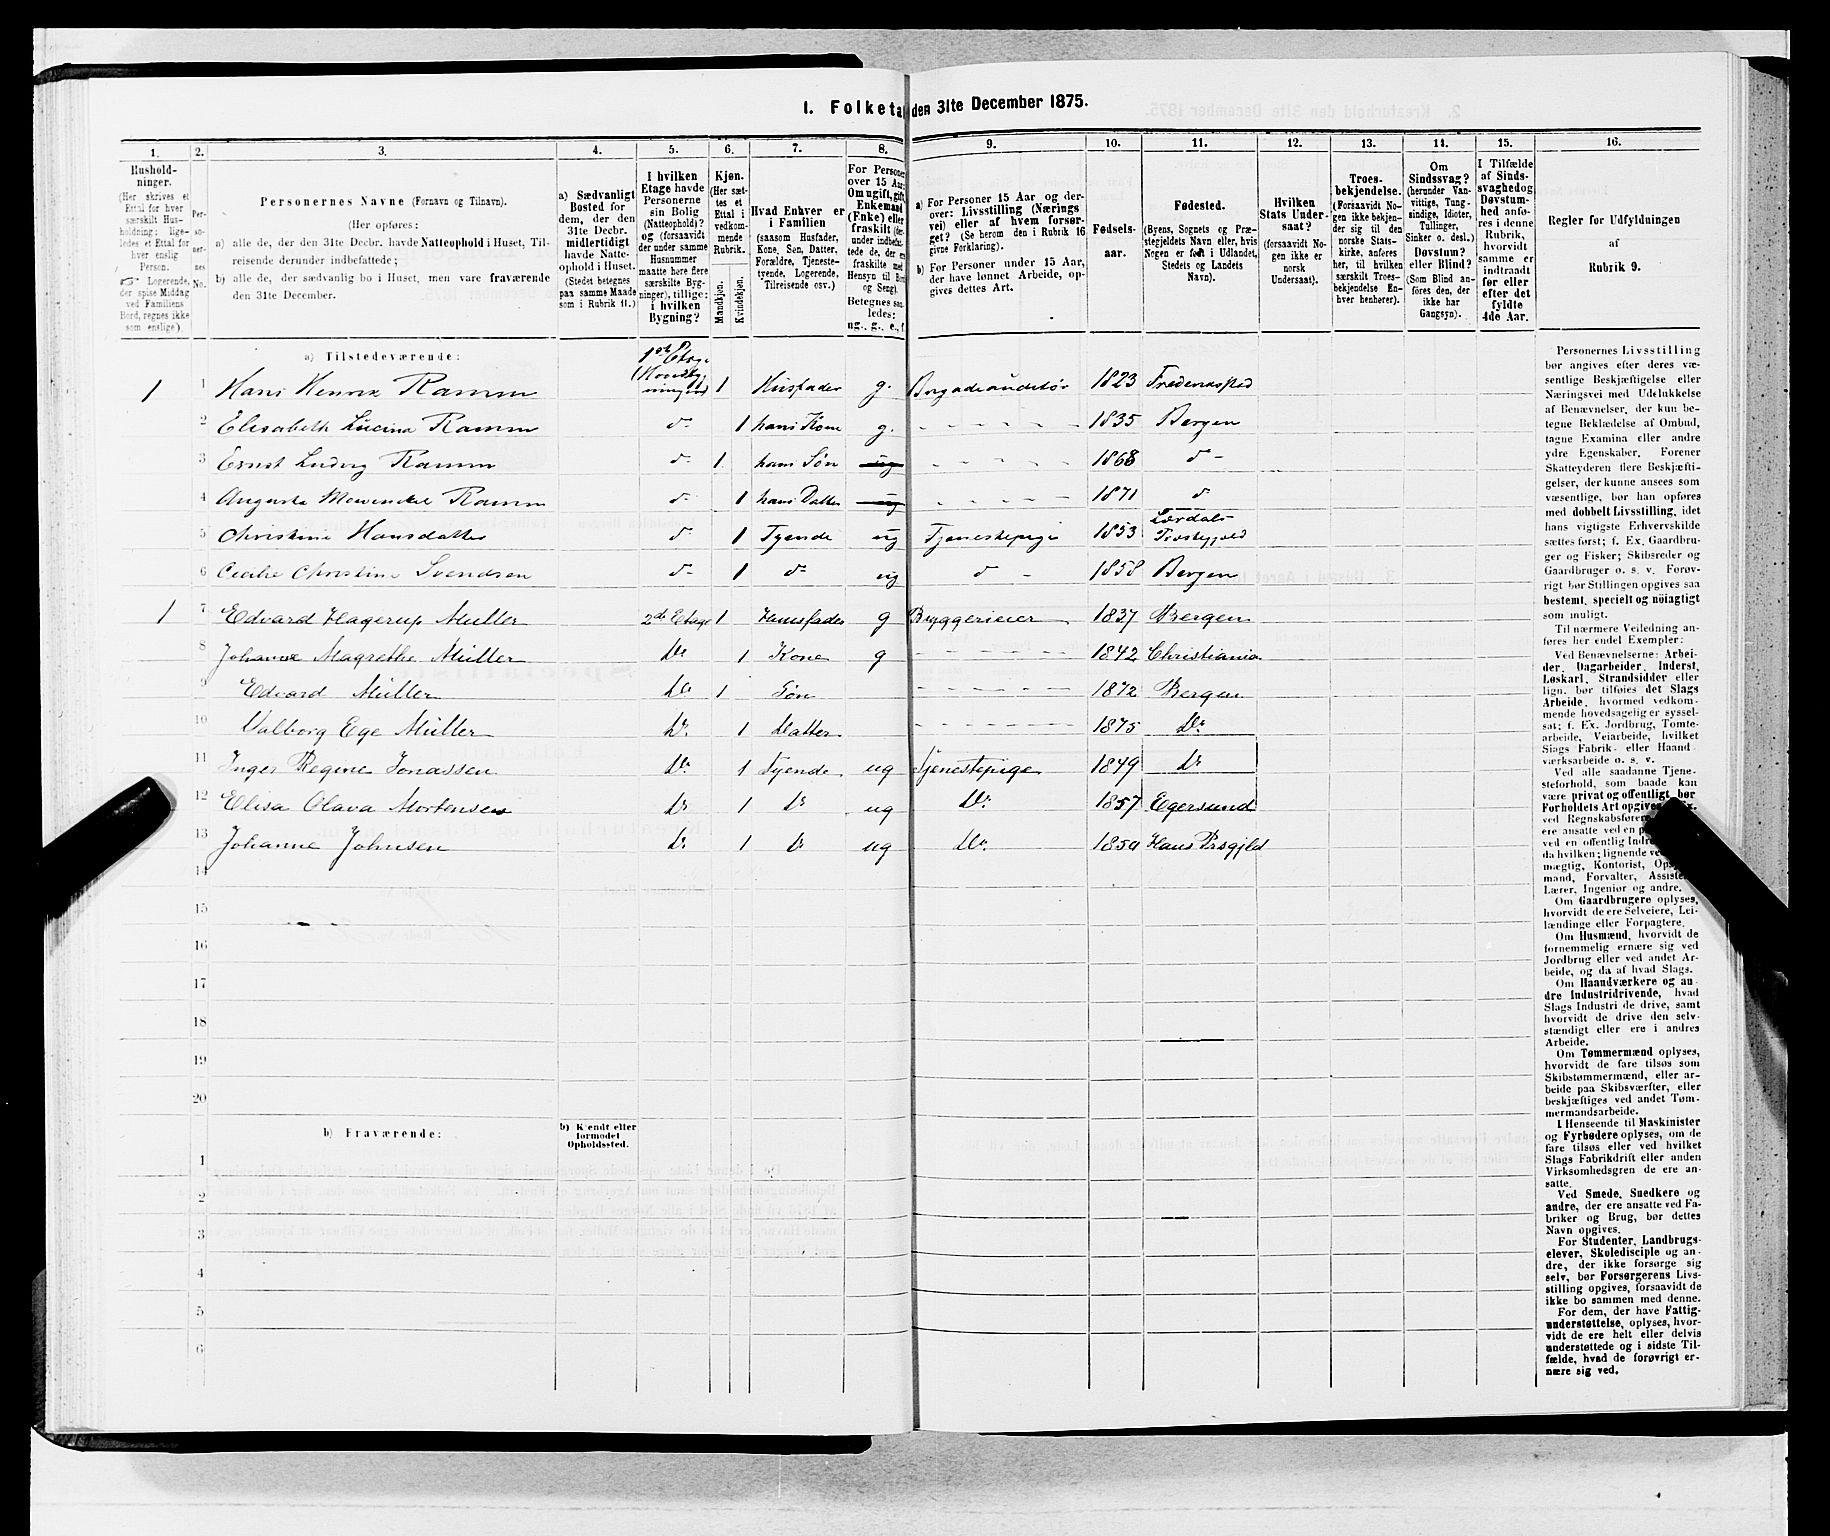 1. Folketa den 31te December 1875.
1. 2. 3. 4. 5. 6. 7. 8. 9. 10. 11. 12. 13. 14. 15. 16.
Hushold-
ninger.
(Her skrives et
Ettal for hver
særskilt Hus-
holdning; lige-
ledes et Ettal for
hver enslig
Person.
Logerende,
der spise Middag
ved Familiens
Bord, regnes ikke
som enslige).
Per-
so-
ner-
nes
No.
Personernes Navne (Fornavn og Tilnavn).
(Her opføres:
a) alle de, der den 31te Decbr. havde Natteophold i Huset, Til-
reisende derunder indbefattede;
b) alle de, der sædvanlig bo i Huset, men vare fraværende
den 31te December.
a) Sædvanligt
Bosted for
dem, der den
31te Decbr.
midlertidigt
havde Natte-
ophold i Huset.
(Stedet betegnes
paa samme Maade
som i Rubrik 11.)
I hvilken
Etage havde
Personerne
sin Bolig
(Natteophold)?
og (forsaavidt
der under samme
Husnummer
maatte høre flere
særskilte Byg-
ninger), tillige:
i hvilken
Bygning?
Kjøn.
(Her sæt-
tes et
Ettal i
vedkom-
mende
Rubrik.
Mandkjøn.
Kvindekjøn.
Hvad Enhver er
i Familien
(saasom Husfader,
Kone, Søn, Datter,
Forældre, Tjeneste-
tyende, Logerende,
Tilreisende osv.)
For Persone
over 15 Aa
Om ugift, gift,
Enkemand
(Enke) eller
fraskilt (der-
under indbefat-
tede, de, der er
fraskilte med
Hensyn til Bor
og Seng).
Betegnes saa-
ledes:
ug., g., e., f.
a) For Personer 15 Aar og der-
over: Livsstilling (Nærings
vei) eller af hvem forsør-
get? (Se herom den i Rubrik 16
givne Forklaring).
b) For Personer under 15 Aar,
der have lønnet Arbeide, op-
gives dettes Art.
Fødsels-
aar.
Fødested.
(Byens, Sognets og Præ-
stegjeldets Navn eller, hvis
Nogen er født i Udlandet,
Stedets og Landets
Navn).
Hvilken
Stats Under-
saat?
(forsaavidt No-
gen ikke er
norsk
Undersaat).
Troes-
bekjendelse.
(Forsaavidt No-
gen ikke bekjen-
der sig til den
norske Stats-
kirke, anføres
her, til hvilken
særskilt Troes-
bekjendelse En-
hver henhører).
Om
Sindssvag?
(herunder Van-
vittige, Tung-
sindige, Idioter,
Tullinger,
Sinker o. desl.)
Døvstum?
eller Blind?
(Som Blind an-
føres den, der
ikke har
Gangsyn).
I Tilfælde
af Sinds-
svaghed og
Døvstum-
hed anfø-
res i denne
Rubrik,
hvorvidt
samme er
indtraadt
før eller
efter det
fyldte
4de Aar.
Regler for Udfyldningen
af
Rubrik 9.
a) Tilstedeværende:
1 1 Hans Henrik Ramm 1ste Etage 1 Husfader g. Brigadeauditør 1823 Frederiksstad
2 Elisabeth Lucina Ramm do 1 hans Kone g. 1835 Bergen
3 Ernst Ludvig Ramm do 1 hans Søn ug 1868 do
4 Augusta Mowinckel Ramm do 1 hans Datter ug 1871 do
5 Christine Hansdatter do 1 Tyende ug Tjenestepige 1853 Lærdals Præstegjeld
6 Cecilie Christine Svendsen do 1 do ug do 1858 Bergen
1 7 Edvard Hagerup Müller 2de Etage 1 Huusfader g Bryggerieier 1837 Bergen
8 Johanne Magrethe Müller Do 1 Kone g 1842 Christiania
9 Edvard Müller Do 1 Søn 1872 Bergen
10 Valborg Ege Müller Do 1 Datter 1875 Do
11 Inger Regine Jonassen Do 1 Tyende ug Tjenestepige 1849 Do
12 Elisa Olava Mortensen Do 1 Do ug Do 1857 Egersund
13 Johanne Johnsen Do 1 Do ug Do 1850 Hans Prsgjld
14
15
16
17
18
19
20
b) Fraværende:
b) Kjendt eller
formodet
Opholdssted.
1
2
3
4
5
6
Personernes Livsstilling
bør angives efter deres væ-
sentlige Beskjæftigelse eller
Næringsvei med Udelukkelse
af Benævnelser, der kun be-
tegne Beklædelse af Ombud,
tagne Examina eller andre
ydre Egenskaber. Forener
Skatteyderen flere Beskjæfti-
gelser, der kunne ansees som
væsentlige, bør han opføres
med dobbelt Livsstilling, idet
hans vigtigste Erhvervskilde
sættes først; f. Ex. Gaardbru-
ger og Fisker; Skibsreder og
Gaardbruger o. s. v. Forøv-
rigt bør Stillingen opgives saa
bestemt, specielt og nöiagtigt
som muligt.
Til nærmere Veiledning an-
føres her endel Exempler:
Ved Benævnelserne: Arbei-
der, Dagarbeider, Inderst,
Løskarl, Strandsidder eller
lign. bør tilføies det Slags
Arbeide, hvormed vedkom-
mende hovedsagelig er syssel-
sat; f. Ex. Jordbrug, Tømte-
arbeide, Veiarbeide, hvilket
Slags Fabrik- eller Haand
værksarbeide o. s. v.
Ved alle saadanne Tjene-
steforhold, som baade kan
være privat og offentligt, bør
Forholdets Art opgives
ved Regnskabsførere
ere ansatte ved en
ved en offentlig Indr
da hvilken; lignende ved
mægtig, Kontorist, Ops
mand, Forvalter, Assiste
Lærer, Ingeniør og andre.
Om Gaardbrugere oplyses,
hvorvidt de ere Selveiere, Lei-
lændinge eller Forpagtere.
Om Husmænd, hvorvidt de
fornemmelig ernære sig ved
Jordbrug eller ved andet Ar-
beide, og da af hvad Slags.
Om Haandværkere og an-
dre Industridrivende, hvad
Slags Industri de drive, samt
hvorvidt de drive den selv-
stændigt eller ere i andres
Arbeide.
Om Tømmermænd oplyses,
hvorvidt de fare tilsøs som
Skibstømmermænd, eller ar-
beide paa Skibsværfter, eller
beskjæftiges ved andet Tøm-
mermandsarbeide.
I Henseende til Maskinister
og Fyrbødere oplyses, om de
fare tilsøs eller ved hvilket
Slags Fabrikdrift eller anden
Virksomhedsgren de ere an-
satte.
Ved Smede, Snedkere og
andre, der ere ansatte ved Fa-
briker og Brug, bør dettes
Navn opgives.
For Studenter, Landbrugs-
elever, Skoledisciple og an-
dre, der ikke forsørge sig
selv, bør Forsørgerens Livs-
stilling opgives, forsaavidt de
ikke bo sammen med denne.
For dem, der have Fattig-
understøttelse, oplyses, hvor-
vidt de ere helt eller delvis
understøttede og i sidste Til-
fælde, hvad de forøvrigt er-
nære sig ved.